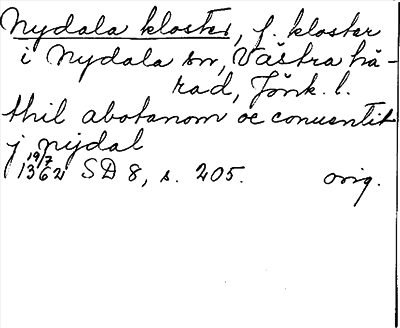 Nydala kloster, f. kloster
i Nydala sn, Västra hä-
rad, Jönk. l.
thil abotanom oc conuentit
j nydal
19/7
1362 SD 8, s. 205. orig.